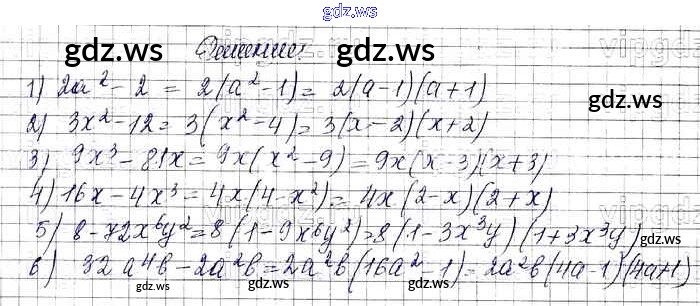 gdz.ws
gdz.ws gdz.ws
Решение:
1) 2a² - 2 = 2(a² - 1) = 2(a - 1)(a + 1)
gdz.ws
2) 3x² - 12 = 3(x² - 4) = 3(x - 2)(x + 2)
3) 9x³ - 81x = 9x(x² - 9) = 9x(x - 3)(x + 3)
4) 16x - 4x³ = 4x(4 - x²) = 4x(2 - x)(2 + x)
5) 8 - 72x⁶y² = 8(1 - 9x⁶y²) = 8(1 - 3x³y)(1 + 3x³y)
6) 32a⁴b - 2a²b = 2a²b(16a² - 1) = 2a²b(4a - 1)(4a + 1)
gdz.ws gdz.ws